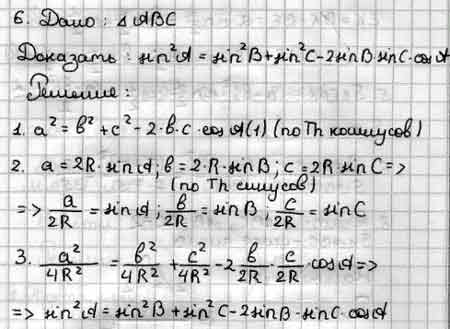 6. Дано: △ABC
Доказать: sin²A = sin²B + sin²C - 2sinB·sinC·cosA
Решение:
1. a² = b² + c² - 2·b·c·cosA (1) (по Th косинусов)
2. a = 2R·sinA; b = 2·R·sinB; c = 2R sinC =>
(по Th синусов)
=> a/2R = sinA; b/2R = sinB; c/2R = sinC
3. a²/4R² = b²/4R² + c²/4R² - 2 b/2R · c/2R · cosA =>
=> sin²A = sin²B + sin²C - 2sinB·sinC·cosA